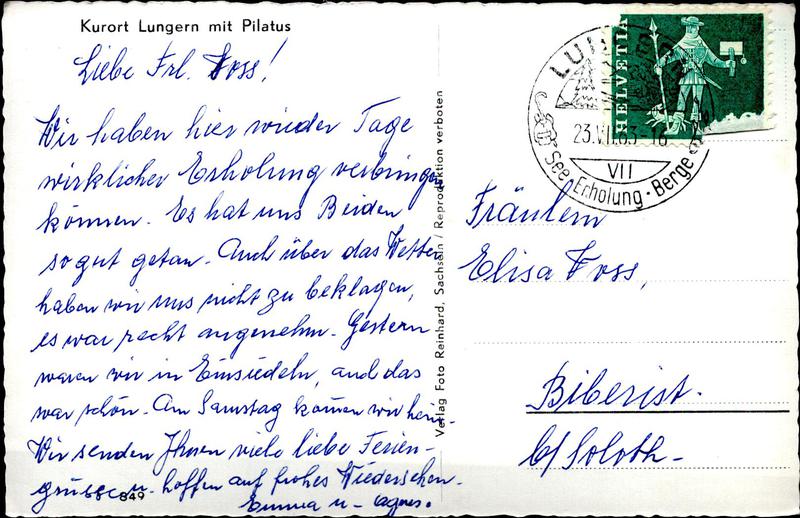 Kurort Lungern mit Pilatus
Liebe Frl. Voss!
Wir haben hier wieder Tage
wirklicher Erholung verbringen
können. Es hat uns Beiden
so gut getan. Auch über das Wetter
haben wir uns nicht zu beklagen,
es war recht angenehm. Gestern
waren wir in Einsiedeln, und das
war schön. Am Samstag können wir heim.
Wir senden Ihnen viele liebe Ferien-
grüsse u. hoffen auf frohes Wiedersehen.
Emma u. Agnes.
849
Verlag Foto Reinhard, Sachseln / Reproduktion verboten
HELVETIA
23.VII.63-16
VII
See-Erholung-Berge
Fräulein
Elisa Voss,
Biberist.
b/Soloth-